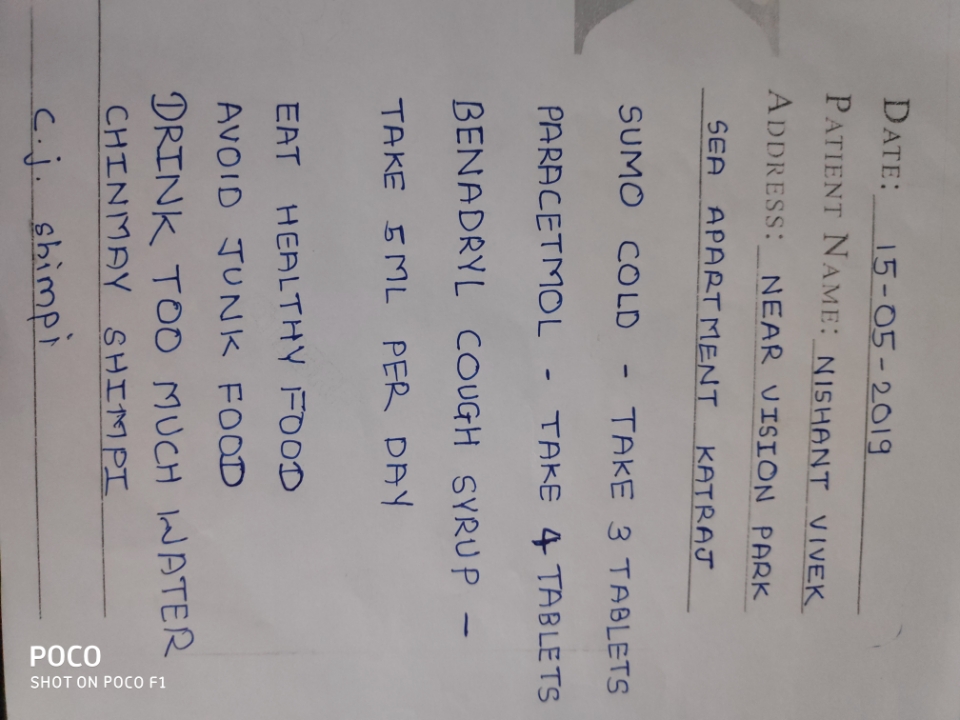 DATE: 15-05-2019
PATIENT NAME: NISHANT VIVEK
ADDRESS: NEAR VISION PARK
SEA APARTMENT KATRAJ
SUMO COLD - TAKE 3 TABLETS
PARACETMOL - TAKE 4 TABLETS
BENADRYL COUGH SYRUP -
TAKE 5 ML PER DAY
EAT HEALTHY FOOD
AVOID JUNK FOOD
DRINK TOO MUCH WATER
CHINMAY SHIMPI
C.j. shimpi
POCO
SHOT ON POCO F1